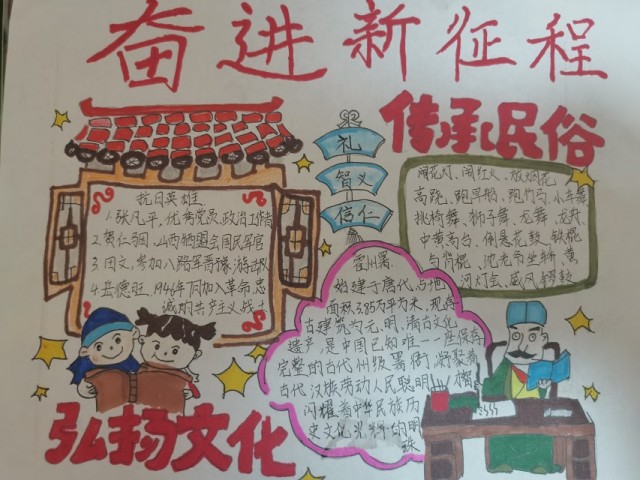 奋进新征程
传承民俗
抗日英雄
1.张凡平,优秀党员,政治工作者
2.贺仁弱国,山西牺盟会国民军官
3.田文,参加八路军晋豫游击队
4.岳德旺,1946年同加入革命,忠
诚的共产主义战士
礼
智义
信仁
闹花灯、闹红火、放烟花
高跷、跑旱船、跑竹马、小车舞
挑椅舞、狮子舞、龙舞、龙灯
中黄高台、倒悬花鼓、铁棍
与背棍、
河灯会、威风锣鼓
霍州署
始建于唐代,占地
面积3.85万平方米,现存
古建筑为元、明、清古文化
遗产,是中国已知唯一一座保存
完整的古代州级署衙,凝聚着
古代汉族劳动人民聪明
闪耀着中华民族历
史文化光辉的明
珠
弘扬文化